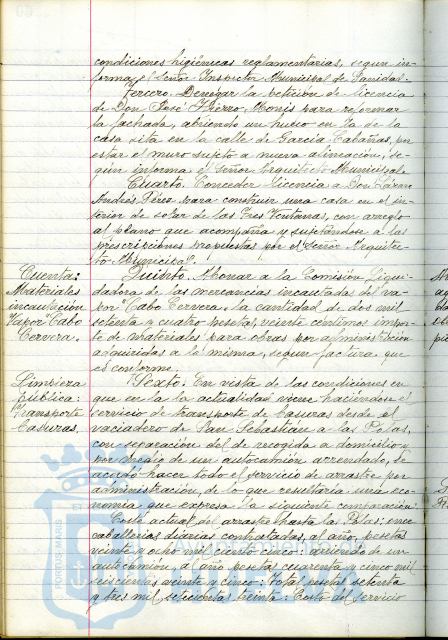 condiciones higiénicas reglamentarias, segun in-
forma el Señor Inspector Municipal de Sanidad.
Tercero. Denegar la petición de licencia
de Don José Hierro Monis para reformar
la fachada, abriendo un hueco en la de la
casa sita en la calle de García Cabañas, por
estar el muro sujeto a nueva alineación, se-
gún informa el Señor Arquitecto Municipal.
Cuarto. Conceder licencia a Don
Andrés Pérez para construir una casa en el in-
terior de solar de las Tres Ventanas, con arreglo
al plano que acompaña y sujetándose a las
prescripciones propuestas por el Señor Arquitec-
to Municipal.
Cuenta:
Materiales
incautación
Vapor Cabo
Cervera.
Quinto. Abonar a la Comisión Liqui-
dadora de las mercancias incautada del va-
por "Cabo Cervera, la cantidad de dos mil
setenta y cuatro pesetas, veinte centimos impor-
te de materiales para obras por administración
adquiridas a la misma, segun factura que
es conforme.
Limpieza
pública:
Transporte
basuras.
Sexto. En vista de las condiciones en
que en la actualidad viene haciéndose el
servicio de transporte de basuras desde el
vaciadero de San Sebastián a las Pilas,
con separación del de recogida a domicilio y
por medio de un autocamión arrendado, se
acordó hacer todo el servicio de arrastre por
administración, de lo que resultaria una eco-
nomia que expresa la siguiente comparación:
Coste actual del arrastre hasta las Pilas: once
caballerias diarias contratadas, al año, pesetas
veinte y ocho mil ciento cinco: arriendo de un
autocamión al año pesetas cuarenta y cinco mil
seiscientas veinte y cinco: Total pesetas setenta
y tres mil setecientas treinta: Coste del servicio